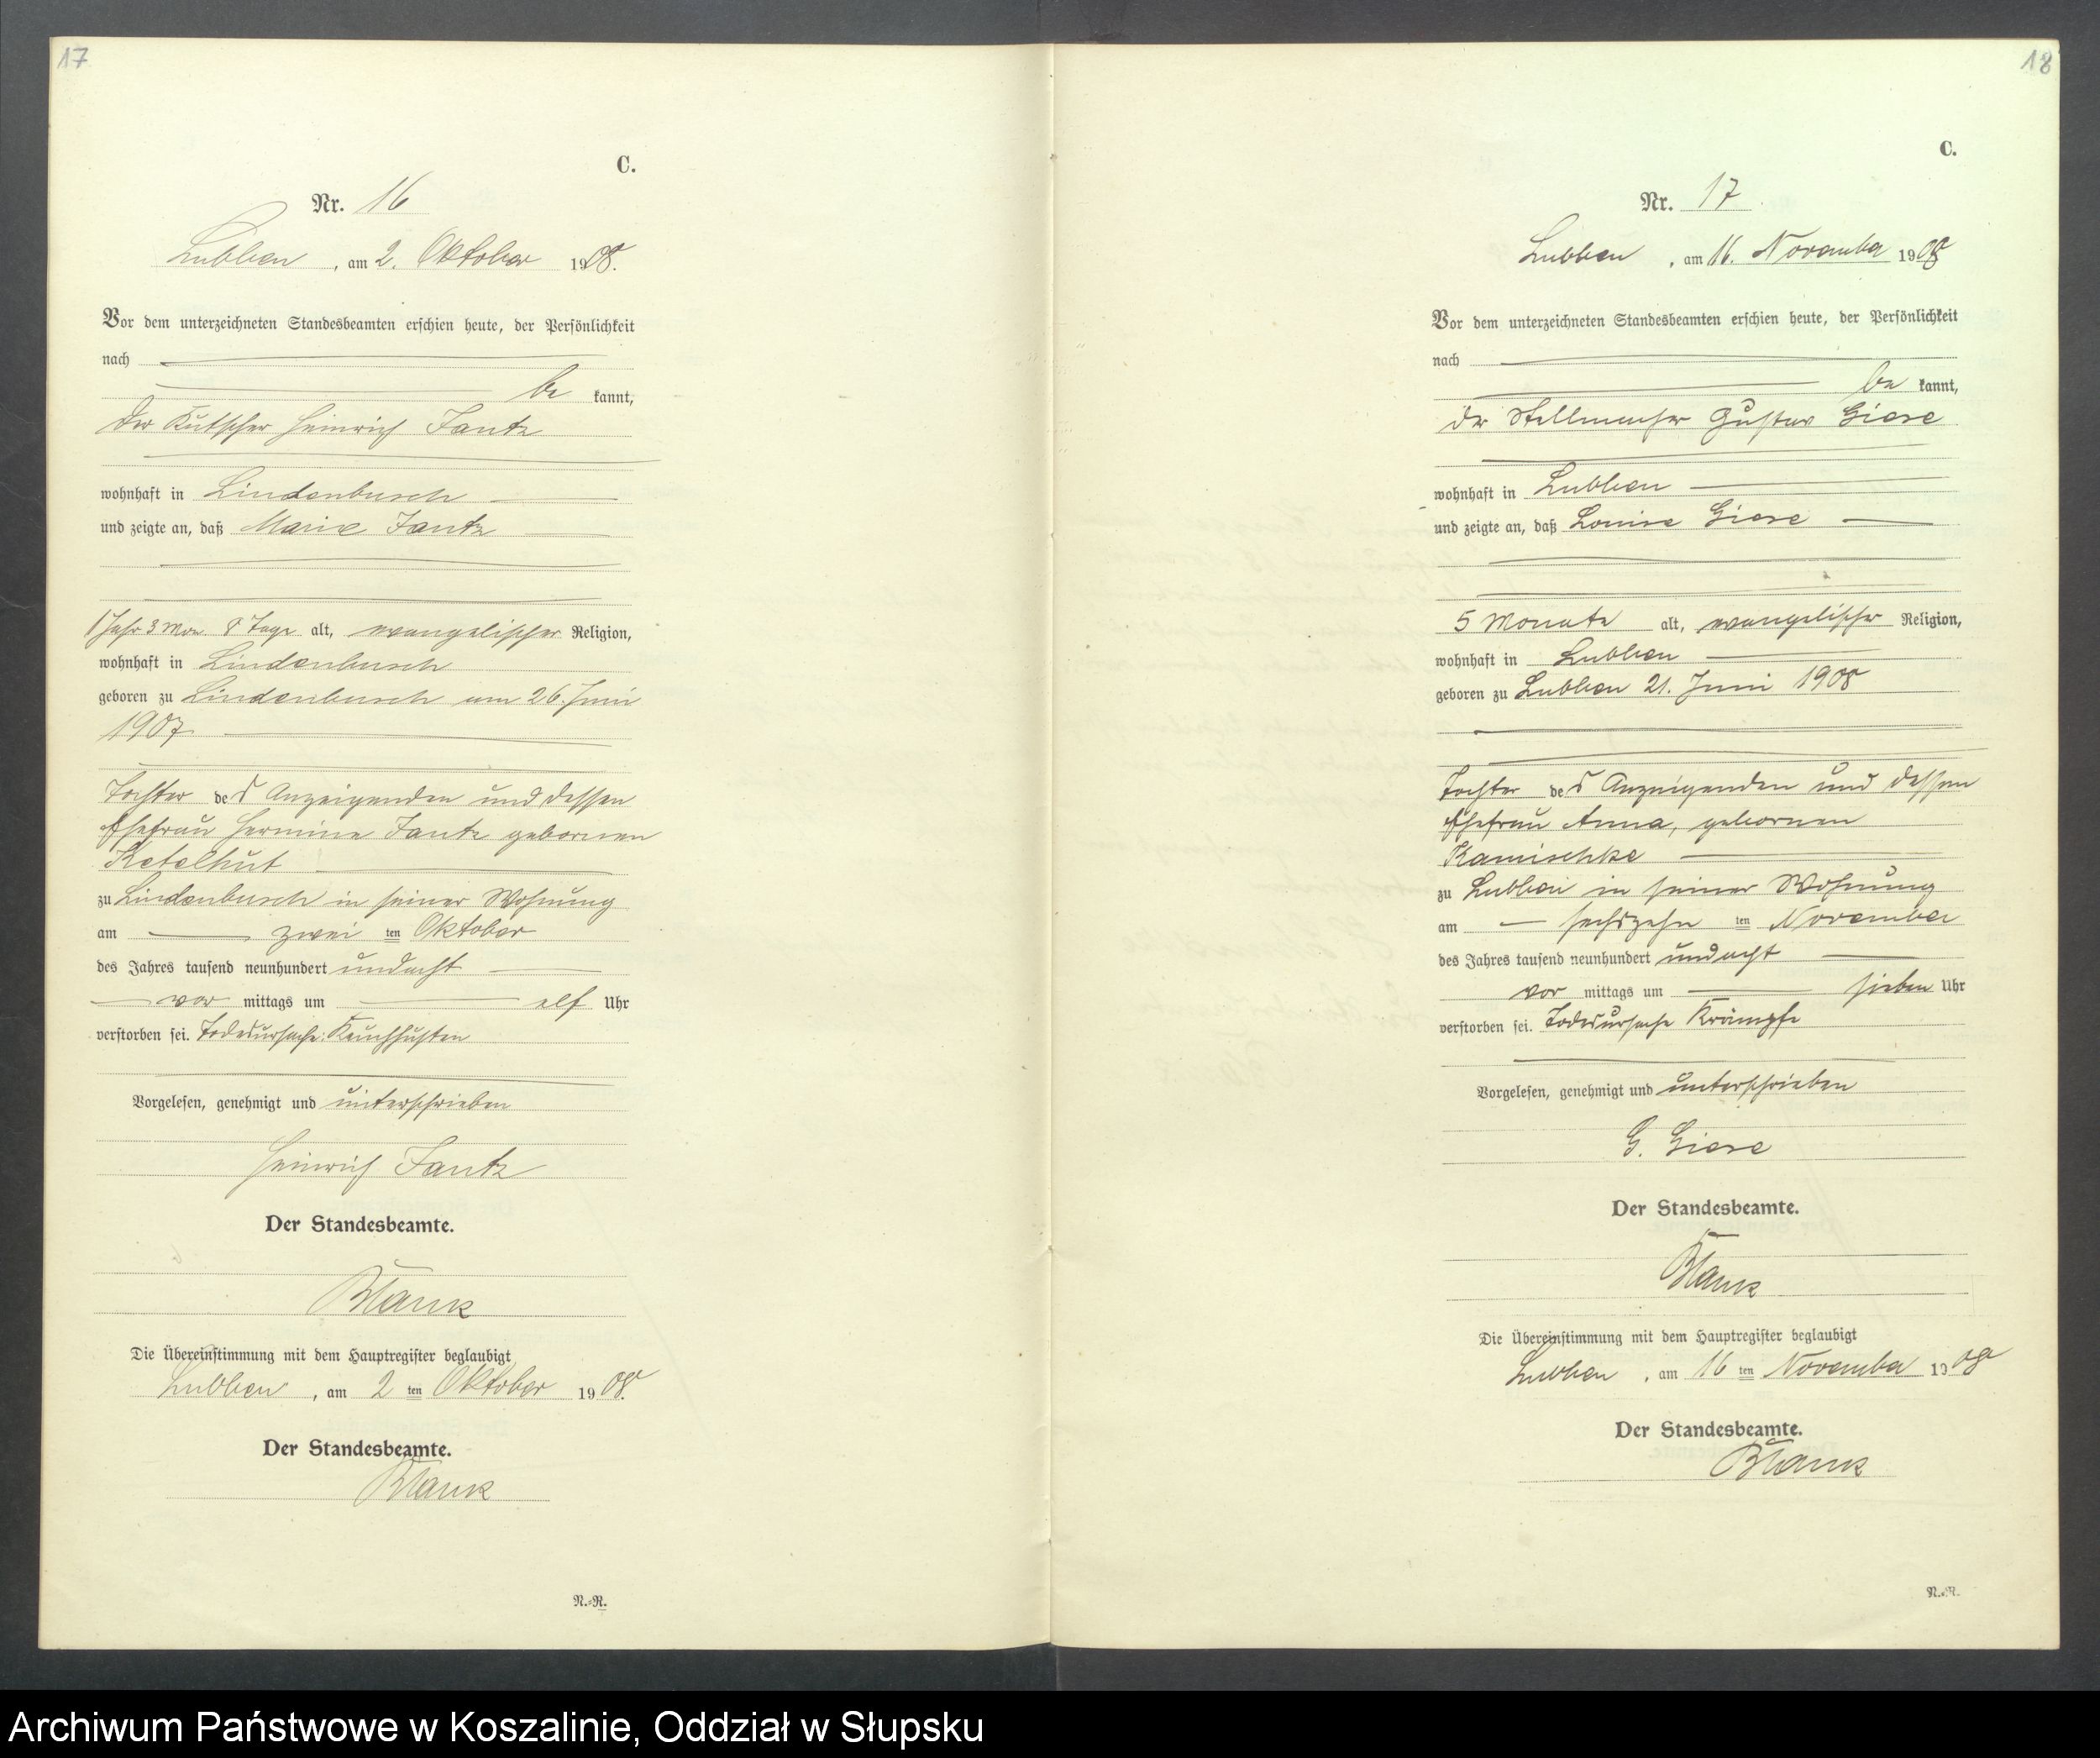 17
C.
Nr. 16
Lubben, am 2. Oktober 1908.
Vor dem unterzeichneten Standesbeamten erschien heute, der Persönlichkeit
nach
be kannt,
der Kutscher Heinrich Jantz
wohnhaft in Lindenbusch
und zeigte an, daß Marie Jantz
1 Jahr 3 Mon 8 Tage alt, evangelischer Religion,
wohnhaft in Lindenbusch
geboren zu Lindenbusch am 26. Juni
1907
Tochter des Anzeigenden und dessen
Ehefrau Hermine Jantz gebornen
Ketelhut
zu Lindenbusch in seiner Wohnung
am zwei ten Oktober
des Jahres tausend neunhundert undacht
vor mittags um elf Uhr
verstorben sei. Todesursache: Keuchhusten
Vorgelesen, genehmigt und unterschrieben
Heinrich Jantz
Der Standesbeamte.
Blank
Die Übereinstimmung mit dem Hauptregister beglaubigt
Lubben, am 2 ten Oktober 1908.
Der Standesbeamte.
Blank
N.=N.
18
C.
Nr. 17
Lubben, am 16. November 1908
Vor dem unterzeichneten Standesbeamten erschien heute, der Persönlichkeit
nach
be kannt,
der Stellmacher Gustav Giese
wohnhaft in Lubben
und zeigte an, daß Louise Giese
5 Monate alt, evangelischer Religion,
wohnhaft in Lubben
geboren zu Lubben 21. Juni 1908
Tochter des Anzeigenden und dessen
Ehefrau Anna, gebornen
Kamischke
zu Lubben in seiner Wohnung
am sechszehn ten November
des Jahres tausend neunhundert undacht
vor mittags um sieben Uhr
verstorben sei. Todesursache Krämpfe
Vorgelesen, genehmigt und unterschrieben
G. Giese
Der Standesbeamte.
Blank
Die Übereinstimmung mit dem Hauptregister beglaubigt
Lubben, am 16 ten November 1908
Der Standesbeamte.
Blank
N.=N.
Archiwum Państwowe w Koszalinie, Oddział w Słupsku